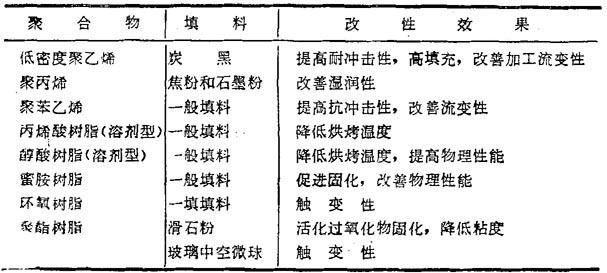 聚合物 填料 改性效果
低密度聚乙烯 炭黑 提高耐冲击性，高填充，改善加工流变性
聚丙烯 焦粉和石墨粉 改善湿润性
聚苯乙烯 一般填料 提高抗冲击性，改善流变性
丙烯酸树脂(溶剂型) 一般填料 降低烘烤温度
醇酸树脂(溶剂型) 一般填料 降低烘烤温度，提高物理性能
蜜胺树脂 一般填料 促进固化，改善物理性能
环氧树脂 一填填料 触变性
聚酯树脂 滑石粉 活化过氧化物固化，降低粘度
玻璃中空微球 触变性